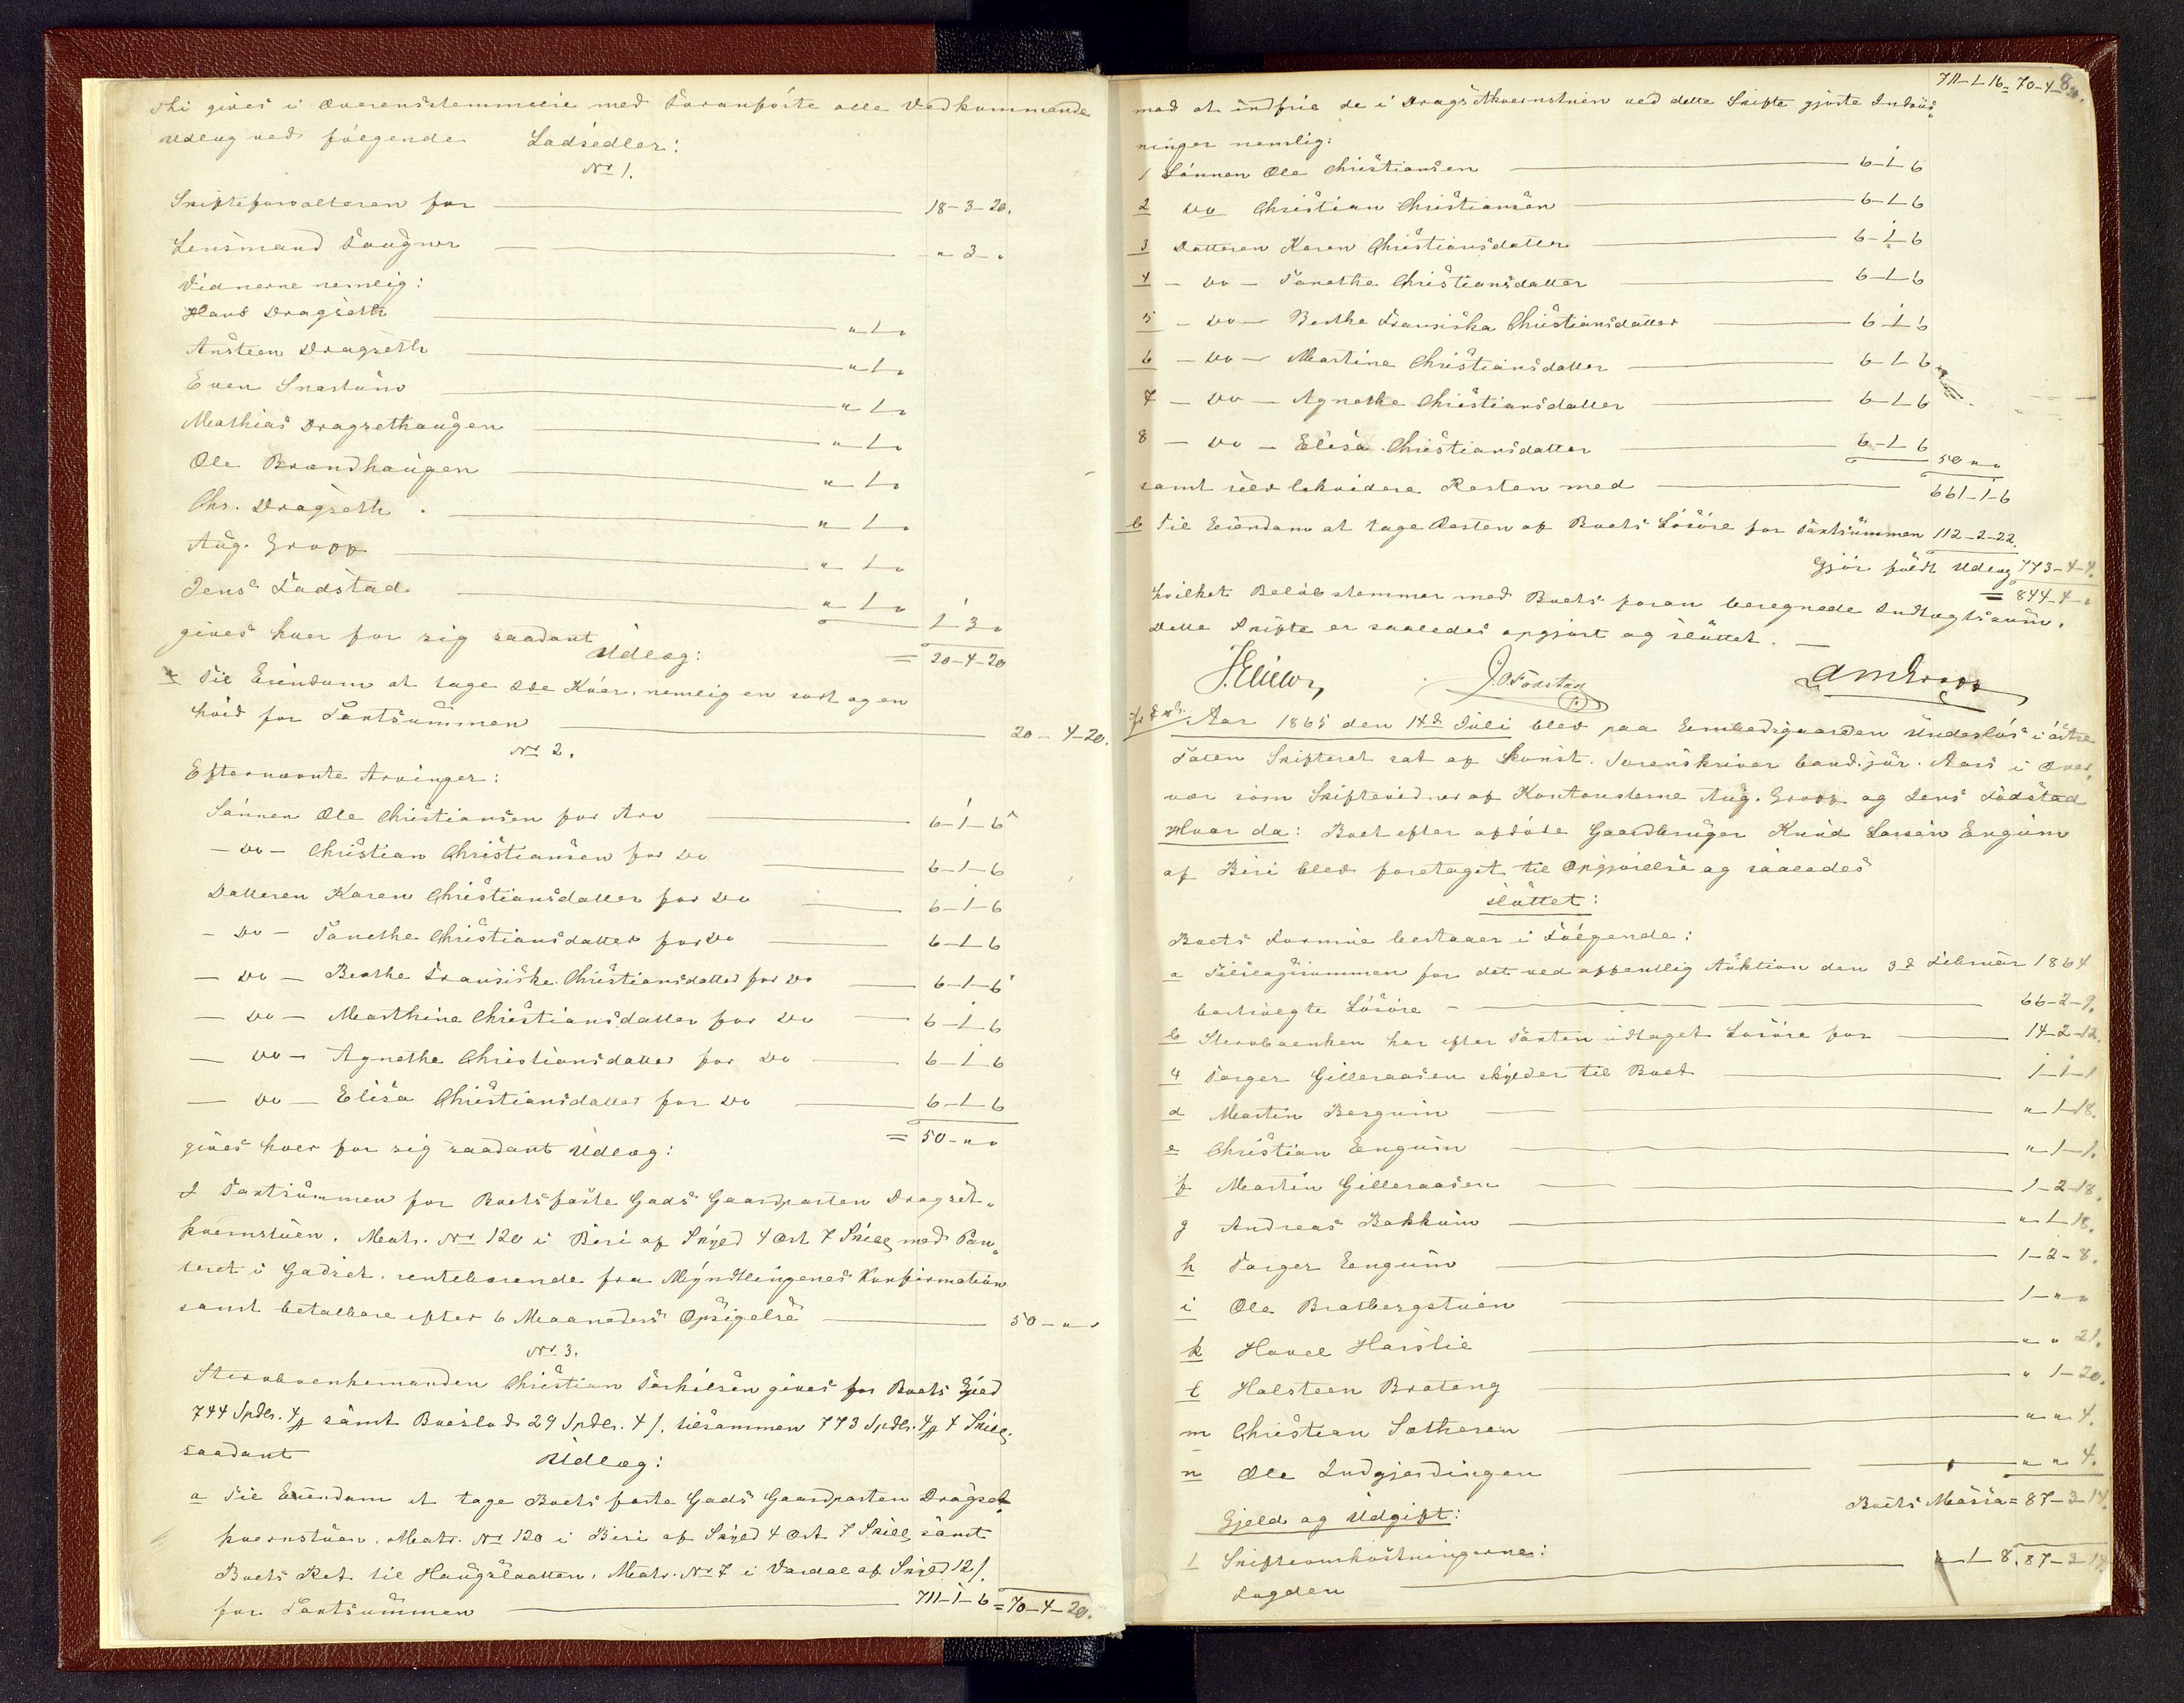 thi gives i Overensstemmelse med Foranførte alle Vedkommende
Udlæg ved følgende Lodsedler:
No 1.
Skifteforvalteren for 18-3-20.
Lensmand Fougner " 3 "
Vidnerne nemlig:
Hans Dragseth " 1 "
Ansteen Dragseth " 1 "
Even Snartum " 1 "
Mathias Dragsethaugen " 1 "
Ole Brændhaugen " 1 "
Chr. Dragseth " 1 "
Aug. Gropp " 1 "
Jens Fodstad " 1 " 1-3 "
gives hver for sig saadant = 20-4-20
Udlæg:
a Til Eiendom at tage 2de Køer, nemlig en sort og en
hvid for Taxtsummen 20-4-20.
No 2.
Efternævnte Arvinger:
Sønnen Ole Christiansen for Arv 6-1-6
- Do - Christian Christiansen for Do 6-1-6
Datteren Karen Christiansdatter for Do 6-1-6
- Do - Tanethe Christiansdatter for Do 6-1-6
- Do - Berthe Fransiska Christiansdatter for Do 6-1-6
- Do - Marthine Christiansdatter for Do 6-1-6
- Do - Agnethe Christiansdatter for Do 6-1-6
- Do - Elisa Christiansdatter for Do 6-1-6
= 50 - " "
gives hver for sig saadant Udlæg:
I Taxtsummen for Boets faste Gods Gaardparten Dragset-
kvernstuen, Matr. No 120 i Biri af Skyld 4 Ort 7 Skill med Pan-
teret i Godset, rentebærende fra Myndlingenes Konfirmation
samt betalbare efter 6 Maaneders Opsigelse 50 - " "
No 3.
Stervboenkemanden Christian Torkilsen gives for Boets Gjæld
744 Spdlr. 4 samt Boeslod 29 Spdlr. 4 s. tilsammen 773 Spdlr. 4 4 Skill.
saadant Udlæg:
a Til Eiendom at tage Boets faste Gods Gaardparten Dragset-
kvernstuen, Matr. No 120 i Biri af Skyld 4 Ort 7 Skill samt
Boets Ret til Haugslaatten, Matr. No 7 i Vardal af Skyld 12 s.
for Taxtsummen 711-1-6 = 70-4-20.
711-1-16 = 70-4-20.
8
mod at indfrie de i Dragsetkvernstuen ved dette Skifte gjorte Indvis-
ninger nemlig:
1 Sønnen Ole Christiansen 6-1-6
2 Do Christian Christiansen 6-1-6
3 Datteren Karen Christiansdatter 6-1-6
4 - Do - Tanethe Christiansdatter 6-1-6
5 - Do - Berthe Fransiska Christiansdatter 6-1-6
6 - Do - Martine Christiansdatter 6-1-6
7 - Do - Agnethe Christiansdatter 6-1-6
8 - Do - Elisa Christiansdatter 6-1-6 50 " "
samt selv likvidere Resten med 661-1-6
b Til Eiendom at tage Resten af Boets Løsøre for Taxtsummen 112-2-22.
Gjør fuldt Udlæg 773-4-4.
= 844-4 "
hvilket Beløb stemmer med Boets foran beregnede Indtægtssum.
Dette Skifte er saaledes opgjort og sluttet.
J. Fodstad A M Gropp
Aar 1865 den 14de Juli blev paa Embedsgaarden Undesløs i østre
Toten Skifteret sat af konst. Sorenskriver cand. jur. Aars i Over-
vær som Skiftevidner af Kontoristerne Aug. Gropp og Jens Fodstad
Hvor da: Boet efter afdøde Gaardbruger Knud Larsen Engum
af Biri blev foretaget til Opgjørelse og saaledes
sluttet:
Boets Formue bestaaer i Følgende:
a Tilslagssummen for det ved offentlig Auktion den 3de Februar 1864
bortsolgte Løsøre 66-2-9.
b Stervboenken har efter Taxten udtaget Løsøre for 14-2-12.
4 Torger Gilleraasen skylder til Boet 1-1-1
d Martin Bergum " 1-18.
e Christian Engum " 1-1.
f Martin Gilleraasen 1-2-18.
g Andreas Bakkum " 1 18.
h Torger Engum 1-2-8.
i Ole Bratbergstuen 1 - " "
k Hovel Horslie " " 21.
l Halsteen Brateng " 1-20.
m Christian Sætheren " " 4.
n Ole Indgjerdingen " " 4.
Boets Massa = 87-3-14.
Gjeld og Udgift:
1 Skifteomkostningerne:
Lugden " 1 8. 87-3-14.